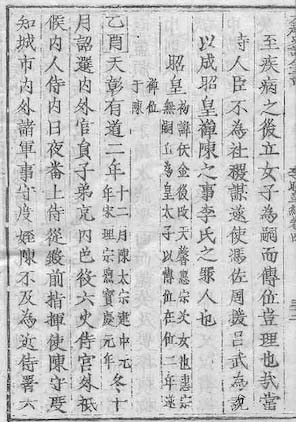 至疾病之後立女子為嗣而傳位豈理也哉當
寺人臣不為社稷謀遂使馮佐周撥吕武為說
以成昭皇禪陳之事李氏之罪人也
昭皇
初諱佛金後改天馨惠宗次女也惠宗
無嗣立為皇太子以傳位在位二年遂
禪位
于陳
乙酉天彰有道二年
十二月陳太宗建中元
年宋理宗寶慶元年
冬十
月詔選內外官員子弟充內色役六火侍宮外祇
候內人侍內日夜番上侍從殿前指揮使陳守度
知城市內外諸軍事守度姪陳不及為近侍署六